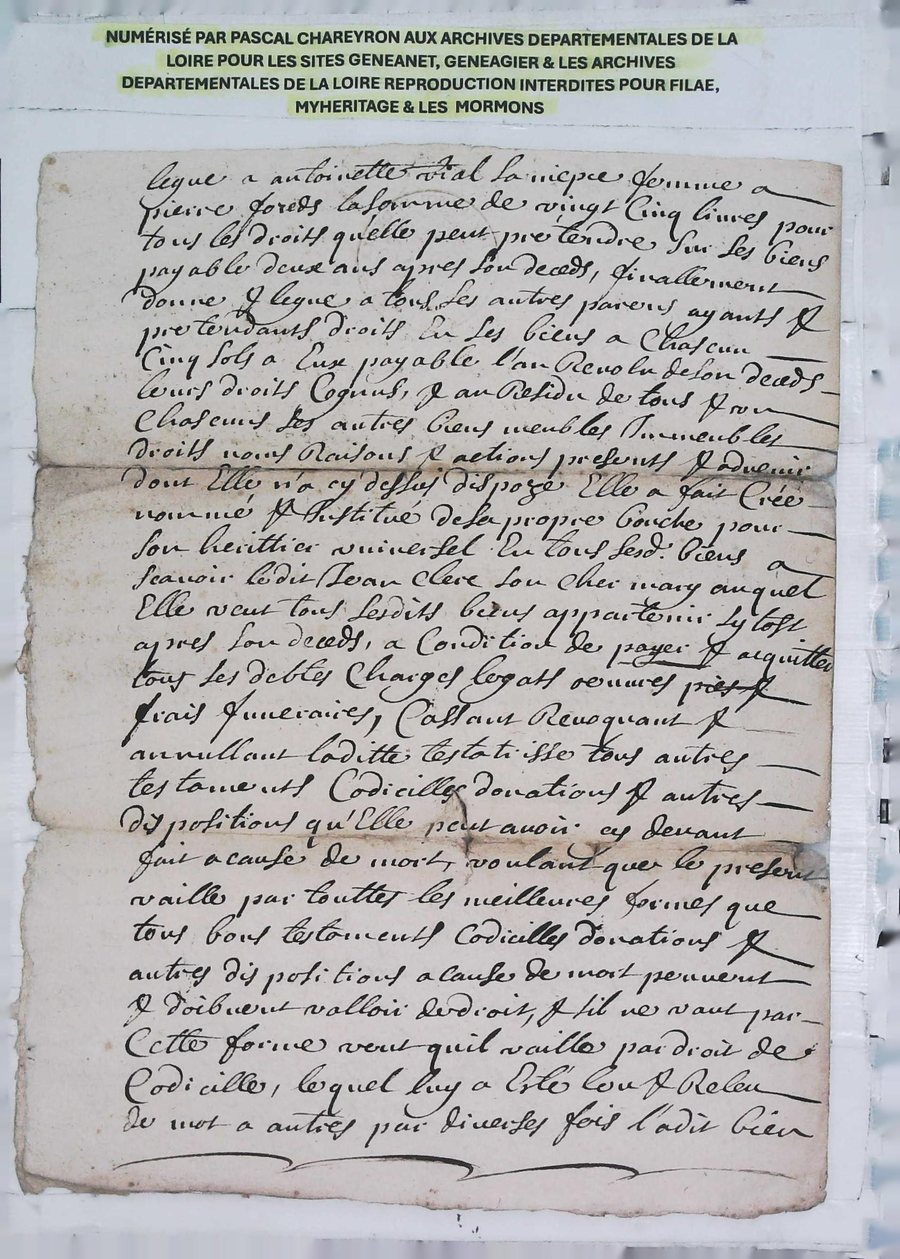 NUMÉRISÉ PAR PASCAL CHAREYRON AUX ARCHIVES DEPARTEMENTALES DE LA
LOIRE POUR LES SITES GENEANET, GENEAGIER & LES ARCHIVES
DEPARTEMENTALES DE LA LOIRE REPRODUCTION INTERDITES POUR FILAE,
MYHERITAGE & LES MORMONS
legue a antoinette vial sa niepce femme a
pierre foreds la somme de vingt Cinq livres pour
tous les droits qu'elle peut pretendre sur ses biens
payable deux ans apres son deceds, finallement
donne & legue a tous ses autres parens ayants &
pretendants droits En ses biens a Chascun
Cinq sols a Eux payable l'an Revolu de son deceds
leurs droits Cognus, & au Residu de tous &
Chascuns ses autres biens meubles Immeubles
droits noms Raisons & actions presents & advenir
dont Elle n'a cy dessus dispozé Elle a fait Crée
nommé & Institué de sa propre bouche pour
son herittier universel En tous sesd. biens a
scavoir ledit Jean Clerc son cher mary auquel
Elle veut tous sesdits biens appartenir sytost
apres son deceds, a Condition de payer & acquitter
tous ses debtes Charges legats oeuvres pies &
frais funeraires, Cassant Revoquant &
annullant laditte testatrisse tous autres
testaments Codicilles donations & autres
dispositions qu'Elle peut avoir cy devant
fait a cause de mort, voulant que le present
vaille par touttes les meilleures formes que
tous bons testaments Codicilles donations &
autres dispositions a cause de mort peuvent
& doibvent valloir de droit, & sil ne vaut par
Cette forme veut quil vaille par droit de
Codicille, lequel luy a Esté leu & Releu
de mot a autres par diverses fois l'a dit bien